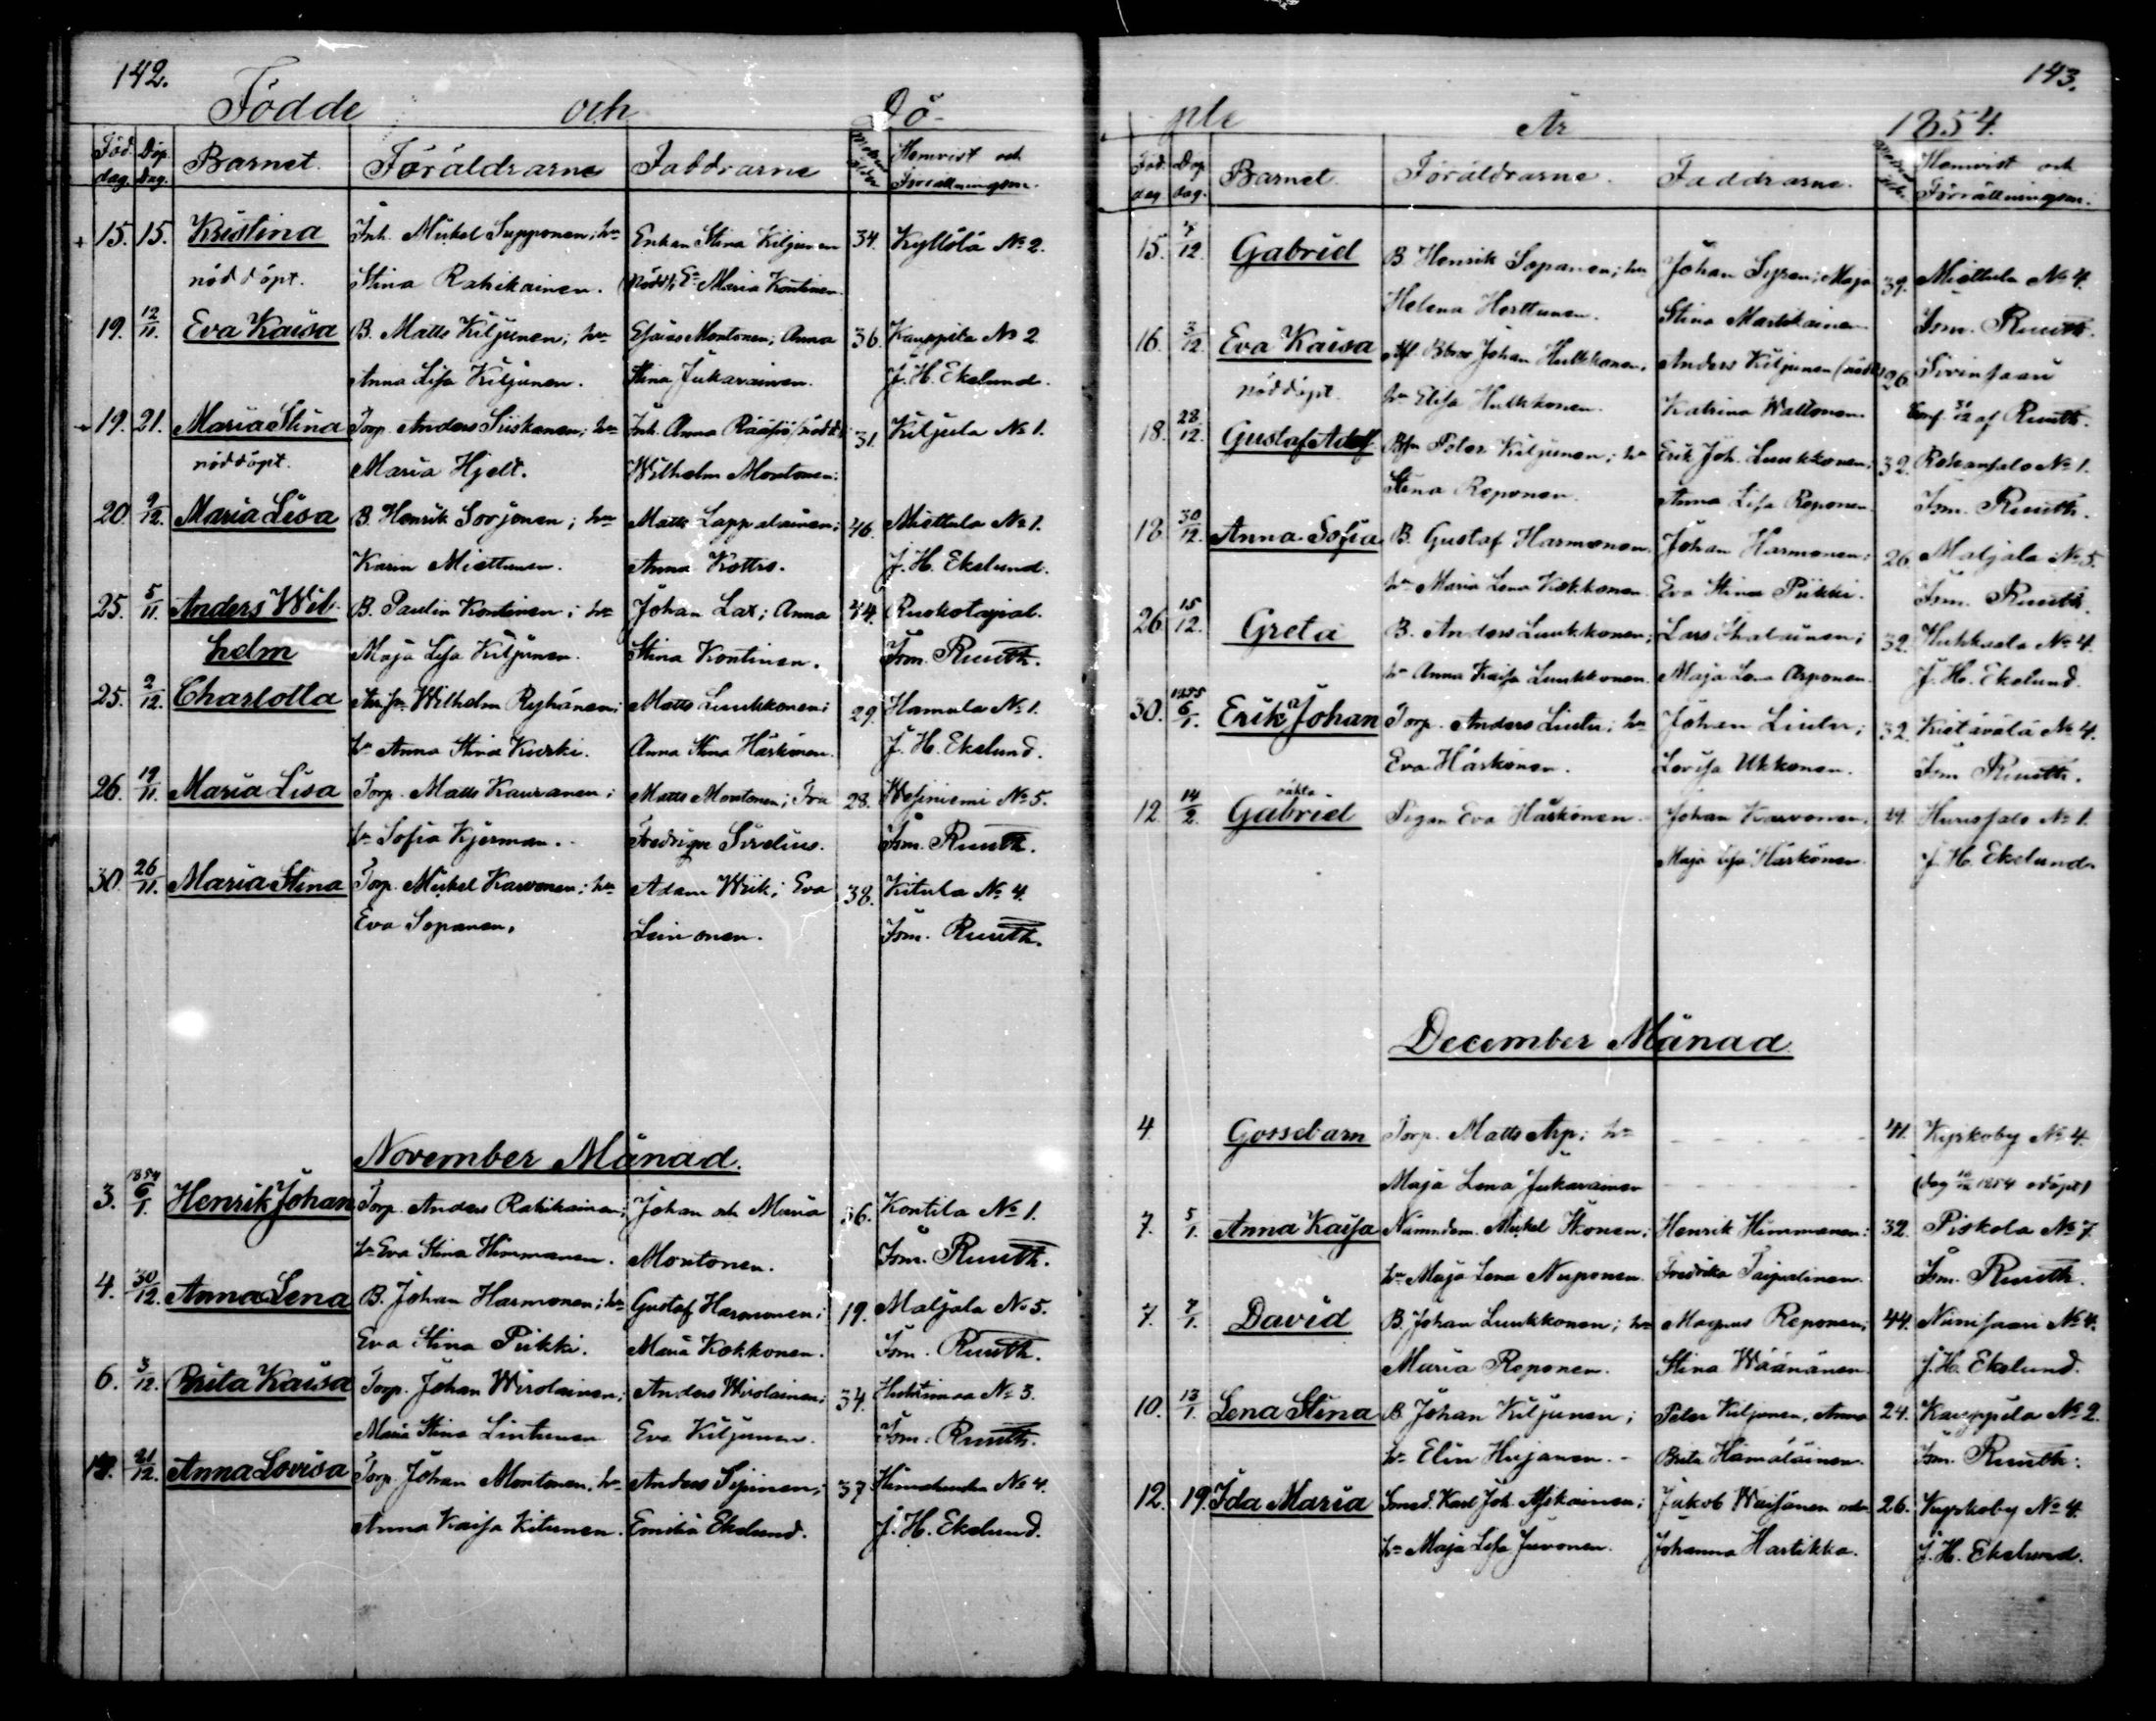 142.
Födde och Dö-
Föd. dag. Döp. Dag. Barnet. Föräldrarne Faddrarne Hemvist och Förrättningsm.
15. 15. Kristina Inh. Mikel Supponen; hu Enkan Stina Kiljunen 34. Kyllölä No 2.
nöddöpt. Stina Rahikainen. Maria Kontinen.
19. 12/11. Eva Kaisa B. Matts Kiljunen; hu Esaias Montonen; Anna 36. Kauppila No 2
Anna Lisa Kiljunen. Stina Jukarainen. J. H. Ekelund.
19. 21. Maria Stina Torp. Anders Siiskonen; hu Inh. Anna 31. Kiljula No 1.
nöddöpt. Maria Hjelt. Wilhelm Montonen.
20. 9/12. Maria Lisa B. Henrik Sorjonen; hu Matts Lappalainen; 46. Miettula No 1.
Karin Miettunen. Anna Kottro. J. H. Ekelund.
25. 5/11. Anders Wil- B. Paulin Kontinen; hu Johan Lax; Anna 44. Ruokotaipal.
helm Maja Lisa Kiljunen. Stina Kontinen. Ism. Ruuth.
25. 2/12. Charlotta Wilhelm Ryhänen; Matts Luukkonen; 29. Hamula No 1.
hu Anna Stina Kurki. Anna Stina Härkönen. J. H. Ekelund.
26. 19/11. Maria Lisa Torp. Matts Kauranen; Matts Montonen; Fru 28. Wesiniemi No 5.
hu Sofia Kjerman. Fredrique Sirelius. Ism. Ruuth.
30. 26/11. Maria Stina Torp. Mikel Karvonen; hu Adam Wiik; Eva 38. Kitula No 4.
Eva Sopanen. Leinonen. Ism. Ruuth.
November Månad.
3. 1854 6/1. Henrik Johan Torp. Anders Rahikainen; Johan och Maria 36. Kontila No 1.
hu Eva Stina Himmanen. Montonen. Ism. Ruuth.
4. 30/12. Anna Lena B. Johan Harmonen; hu Gustaf Harmonen; 19. Maljala No 5.
Eva Stina Piikki. Maria Kekkonen. Ism. Ruuth.
6. 3/12. Brita Kaisa Torp. Johan Wirolainen; Anders Wirolainen; 34. Huhtimaa No 3.
Maria Stina Lintunen Eva Kiljunen. Ism. Ruuth.
21/12. Anna Lovisa Torp. Johan Montonen, hu Anders Sipinen; 37. No 4.
Anna Kaisa Kitunen. Emilia Ekelund. J. H. Ekelund.
143.
pte År 1854.
Föd. dag. Döp dag. Barnet. Föräldrarne. Faddrarne. Hemvist och Förrättningsm.
15. 7/12. Gabriel B. Henrik Sopanen; hu Johan Syren; Maja 39. Miettula No 4.
Helena Horttunen. Stina Martikainen Ism. Ruuth.
16. 3/12. Eva Kaisa Johan Hulkkonen, Anders Kiljunen 26. Sivinsaari
nöddöpt. hu Elisa Hulkkonen. Katrina Waltonen. af Ruuth.
18. 28/12. Gustaf Adolf Peter Kiljunen; hu Erik Joh. Luukkonen; 32. No 1.
Stina Reponen. Anna Lisa Reponen. Ism. Ruuth.
18. 30/12. Anna Sofia B. Gustaf Harmonen, Johan Harmonen; 26. Maljala No 5.
hu Maria Lena Kekkonen. Eva Stina Piikki. Ism. Ruuth.
26. 15/12. Greta B. Anders Luukkonen; Lars 32. No 4.
hu Anna Kaisa Luukkonen. Maja Lena Arponen. J. H. Ekelund.
30. 1855 6/1. Erik Johan Torp. Anders Liutu; hu Johan Liutu; 32. Kietävälä No 4.
Eva Härkönen. Lovisa Ukkonen. Ism Ruuth.
12. 14/2. oäkta Gabriel Pigan Eva Härkönen. Johan Karvonen, 29. No 1.
Maja Lisa Härkönen. J. H. Ekelund.
December Månad.
4. Gossebarn Torp. Matts Arp; hu 41. Kyrkoby No 4.
Maja Lena Jukarainen 1854 odöpt)
7. 5/1. Anna Kaisa Nämndem. Mikel Ikonen; Henrik Himmanen: 32. Piskola No 7
hu Maja Lena Nuponen. Fredrika Taipalinen. Ism. Ruuth.
7. 7/1. David B. Johan Luukkonen; hu Magnus Reponen; 44. Niinisaari No 4.
Maria Reponen. Stina Wäänänen. J. H. Ekelund.
10. 13/1. Lena Stina B. Johan Kiljunen; Peter Kiljunen, Anna 24. Kauppila No 2.
hu Elin Hujanen. Brita Hämäläinen. Ism. Ruuth.
12. 19. Ida Maria Smed. Karl Joh. Askainen; Jakob Waisänen och 26. Kyrkoby No 4.
hu Maja Lisa Juvonen. Johanna Hartikka. J. H. Ekelund.